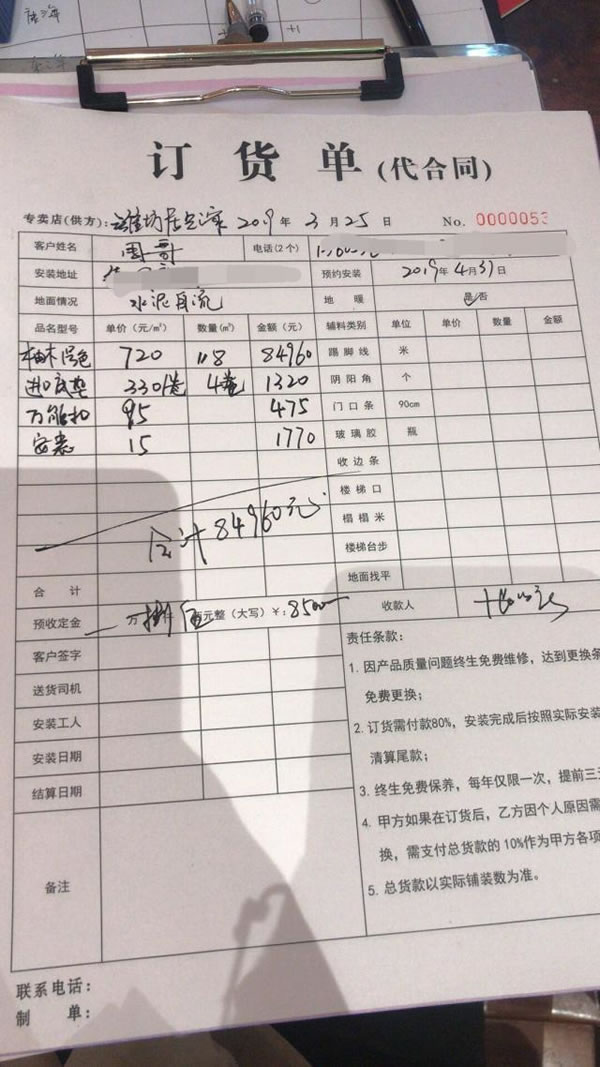 订货单(代合同)
专卖店(供方): 潍坊居 2019年3月25日 No. 0000053
客户姓名 周哥 电话(2个)
安装地址 预约安装 2019年4月31日
地面情况 水泥自流 地暖 是/否
品名型号 单价(元/㎡) 数量(㎡) 金额(元) 辅料类别 单位 单价 数量 金额
柚木 色 720 118 84960 踢脚线 米
进口底垫 330/卷 4卷 1320 阴阳角 个
万能扣 95 475 门口条 90cm
安装 15 1770 玻璃胶 瓶
收边条
楼梯口
合计84960元
榻榻米
楼梯台步
合计 地面找平
预收定金 万 元整(大写)¥: 收款人
客户签字 责任条款:
送货司机 1. 因产品质量问题终生免费维修，达到更换条
免费更换；
安装工人 2. 订货需付款80%，安装完成后按照实际安装
安装日期 清算尾款；
结算日期 3. 终生免费保养，每年仅限一次，提前三
4. 甲方如果在订货后，乙方因个人原因需
备注 换，需支付总货款的10%作为甲方各项
5. 总货款以实际铺装数为准。
联系电话:
制单: